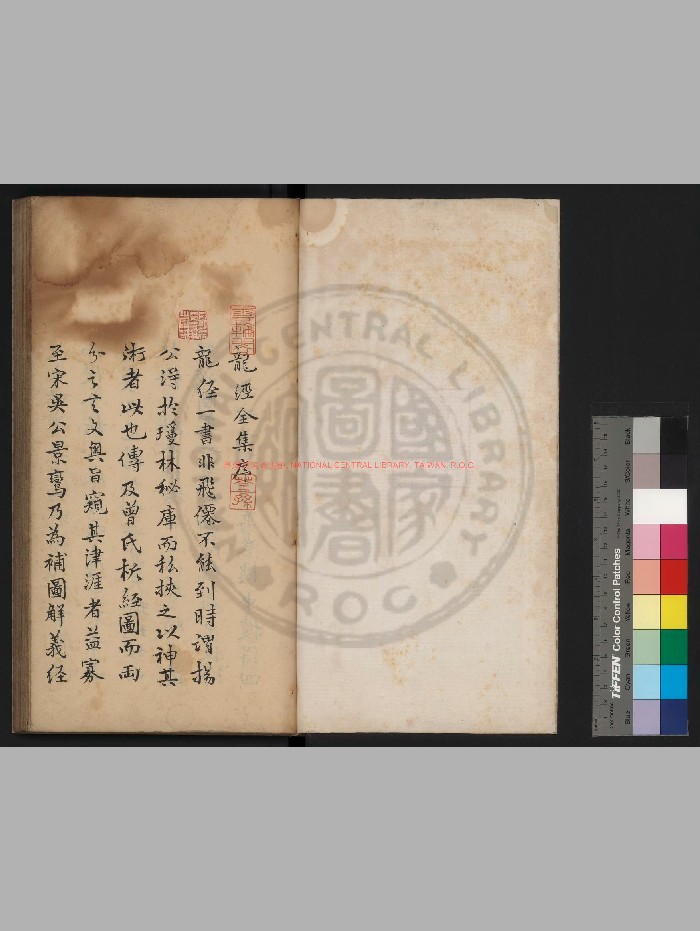 龍經全集序
龍经一書非飛僊不能到時謂揚
公淂於瓊林秘庫而私挾之以神其
術者以也傳及曾氏析經圖而兩
分之言文奥旨窺其津涯者益寡
至宋吳公景鸞乃為補圖解義经
NATIONAL CENTRAL LIBRARY, TAIWAN, R.O.C.
NATIONAL CENTRAL LIBRARY
R.O.C.
國家圖書館
TIFFEN Color Control Patches
Blue
Cyan
Green
Yellow
Red
Magenta
White
3/Color
Black